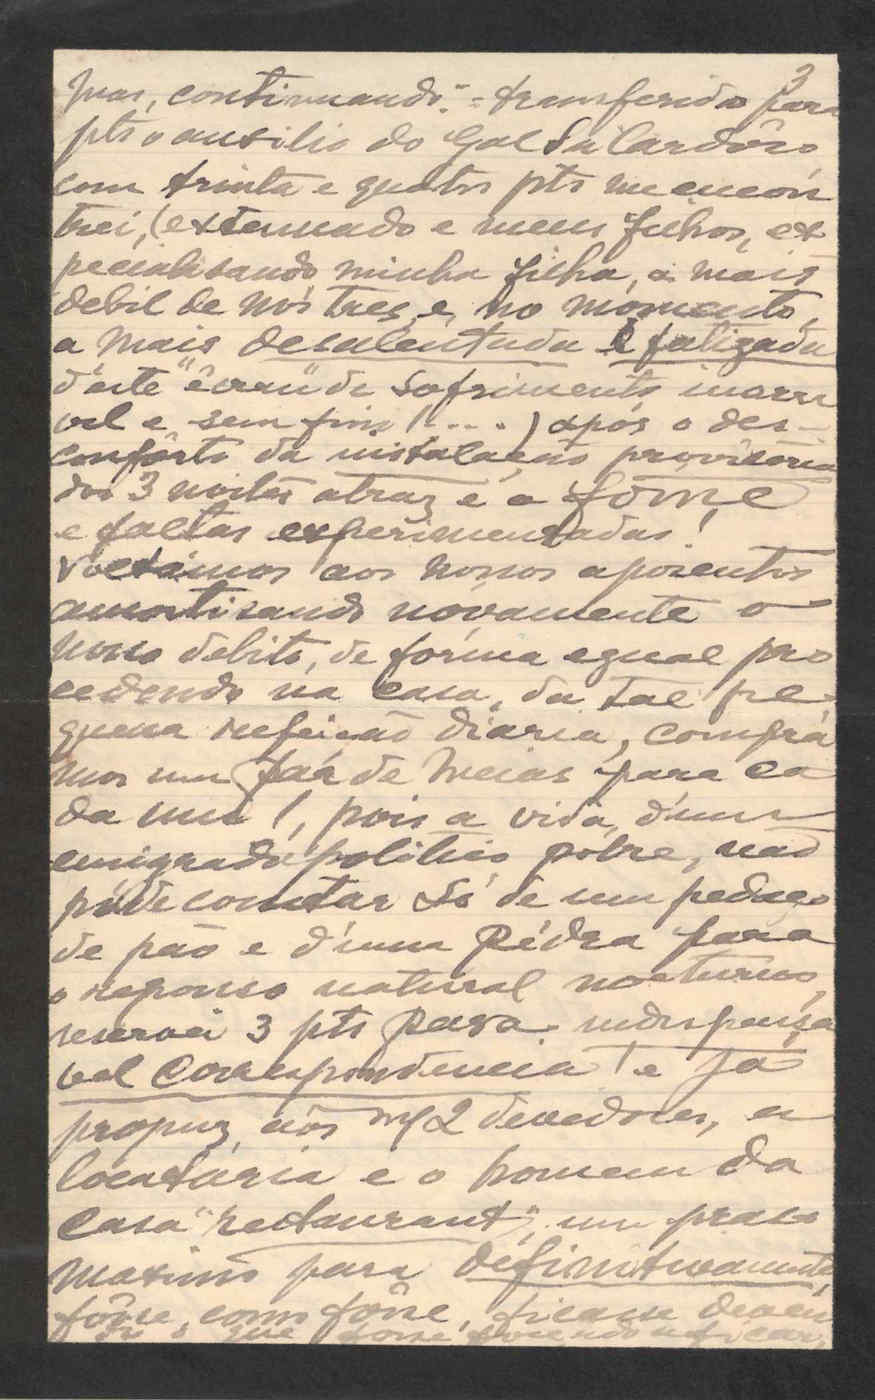 3
Mas, continuando: - transferido para
pts o auxilio do Gal Sá Cardôso
com trinta e quatro pts me encon
trei, (extenuado e meus filhos, es
pecialisando minha filha, a mais
debil de nós tres, e, no momento,
a mais desalentada e fatigada
d'este "écran" de sofrimento inarra
vel e sem fim! ...) após o des-
confôrto da instalação provisória
das 3 noites atraz e a fome
e faltas experimentadas!
Voltámos aos nossos aposentos
amortisando nóvamente o
nosso debito, de fórma egual pro
cedendo na casa, da tal pe-
quena refeição diaria, comprá
mos um par de meias para ca
da um!, pois a vida, d'um
emigrado politico pobre, não
póde constar só de um pedaço
de pão e d'uma pédra para
o repouso natural nocturno,
reservei 3 pts para indispensa
vel correspondencia! e já
propuz, aos 2 devedores, a
locatária e o homem da
casa "restaurant", um praso
maximo para definitivamente
fôsse, como fôsse, ficasse